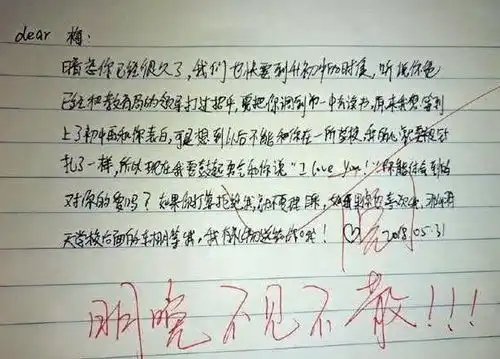 dear 梅：
暗恋你已经很久了，我们也快要到升初中的时候，听说你爸
已经和教育局的领导打过招呼，要把你调到市一中去读书，原来我想等到
上了初中再和你表白，可是想到以后不能和你在一所学校，我的心就要被针
扎了一样，所以现在我要鼓起勇气和你说"I love you！"你能体会到我
对你的爱吗？如果你打算拒绝我，就不要理睬，如果你也喜欢我，
天学校后面的车棚等我，我有礼物送给你哦！♡ 2018.05.31
阅
明晚不见不散！！！